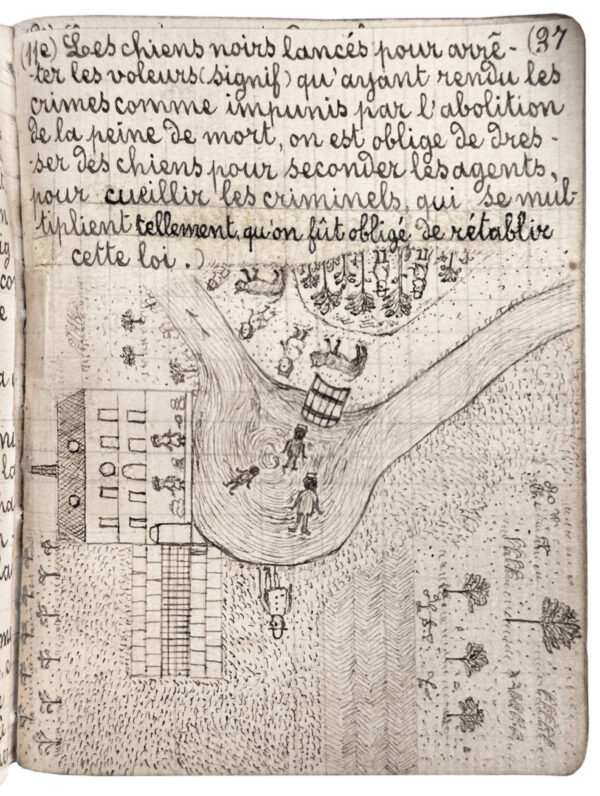 (37
(11e) Les chiens noirs lancés pour arrê-
ter les voleurs (signif) qu'ayant rendu les
crimes comme impunis par l'abolition
de la peine de mort, on est oblige de dres-
-ser des chiens pour seconder les agents,
pour cueillir les criminels, qui se mul-
tiplient tellement, qu'on fût obligé de rétablir
cette loi.)